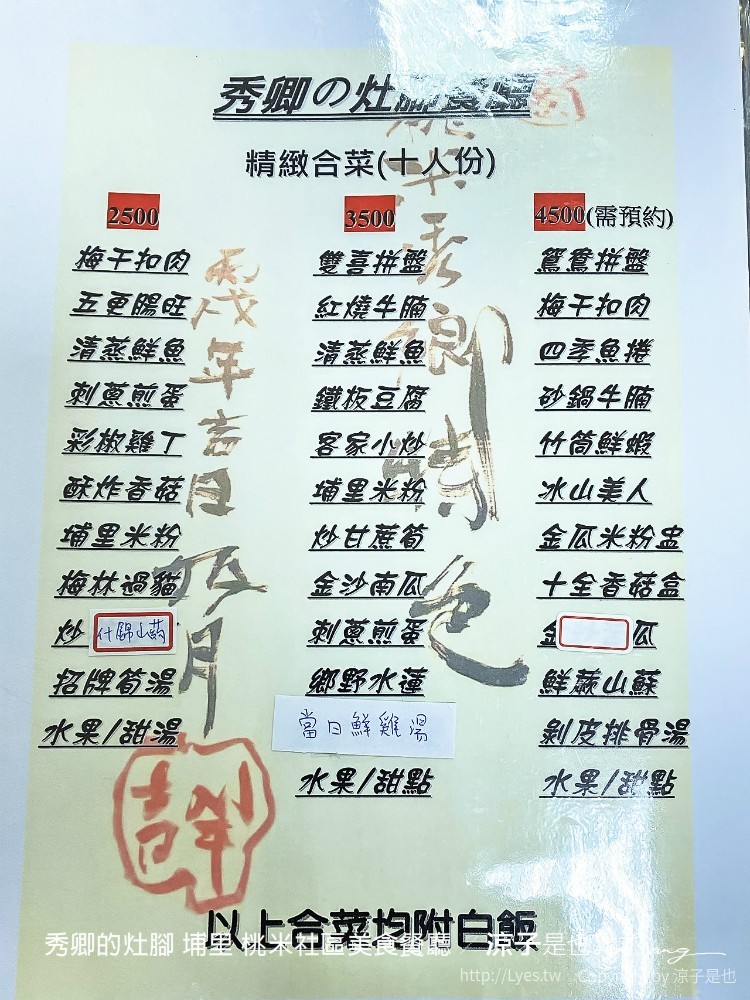 秀卿の灶腳餐廳
精緻合菜(十人份)
2500
梅干扣肉
五更腸旺
清蒸鮮魚
刺蔥煎蛋
彩椒雞丁
酥炸香菇
埔里米粉
梅林過貓
炒什錦山葯
招牌筍湯
水果/甜湯
3500
雙喜拼盤
紅燒牛腩
清蒸鮮魚
鐵板豆腐
客家小炒
埔里米粉
炒甘蔗筍
金沙南瓜
刺蔥煎蛋
鄉野水蓮
當日鮮雞湯
水果/甜點
4500(需預約)
鴛鴦拼盤
梅干扣肉
四季魚捲
砂鍋牛腩
竹筒鮮蝦
冰山美人
金瓜米粉盅
十全香菇盒
金 瓜
鮮蕨山蘇
剝皮排骨湯
水果/甜點
以上合菜均附白飯
秀卿的灶腳 埔里 桃米社區美食餐廳
涼子是也
http://Lyes.tw
Copyright by 涼子是也